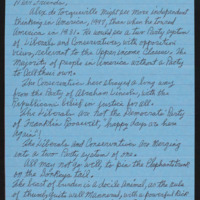 Dear Friends,
Alex de Tocqueville might see more independent
thinking in America, 1997, than when he toured
America in 1831. He would see a two Party system
of Liberals and Conservatives with opposition
views, relevant to the Upper income Classes. The
Majority of people in America without a Party
to call their own.
The Conservatives have strayed a long way
from the Party of Abraham Lincoln, with the
Republicans belief in justice for all.
The Liberals are not the Democratic Party
of Franklin Roosevelt, "happy days are here
again"!
The Liberals and Conservatives are merging
into a two Party system of one.
All may not go well, to pin the Elephants tail
on the Donkeys tail.
The beast of burden is a docile animal, as the rule
of thumb, quite well Mannered, with a powerful kick